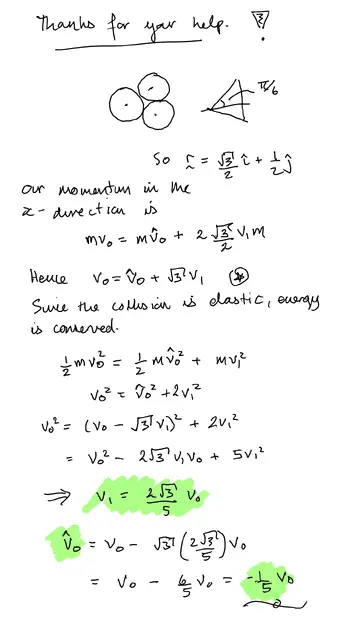 Thanks for your help.
π/6
So r = √3/2 î + 1/2 ĵ
our momentum in the
x-direction is
mv₀ = mv̂₀ + 2 √3/2 v₁m
Hence v₀ = v̂₀ + √3 v₁ (*)
Since the collision is elastic, energy
is conserved.
1/2 mv₀² = 1/2 mv̂₀² + mv₁²
v₀² = v̂₀² + 2v₁²
v₀² = (v₀ - √3 v₁)² + 2v₁²
= v₀² - 2√3 v₁v₀ + 5v₁²
⇒ v₁ = 2√3/5 v₀
v̂₀ = v₀ - √3 (2√3/5) v₀
= v₀ - 6/5 v₀ = -1/5 v₀